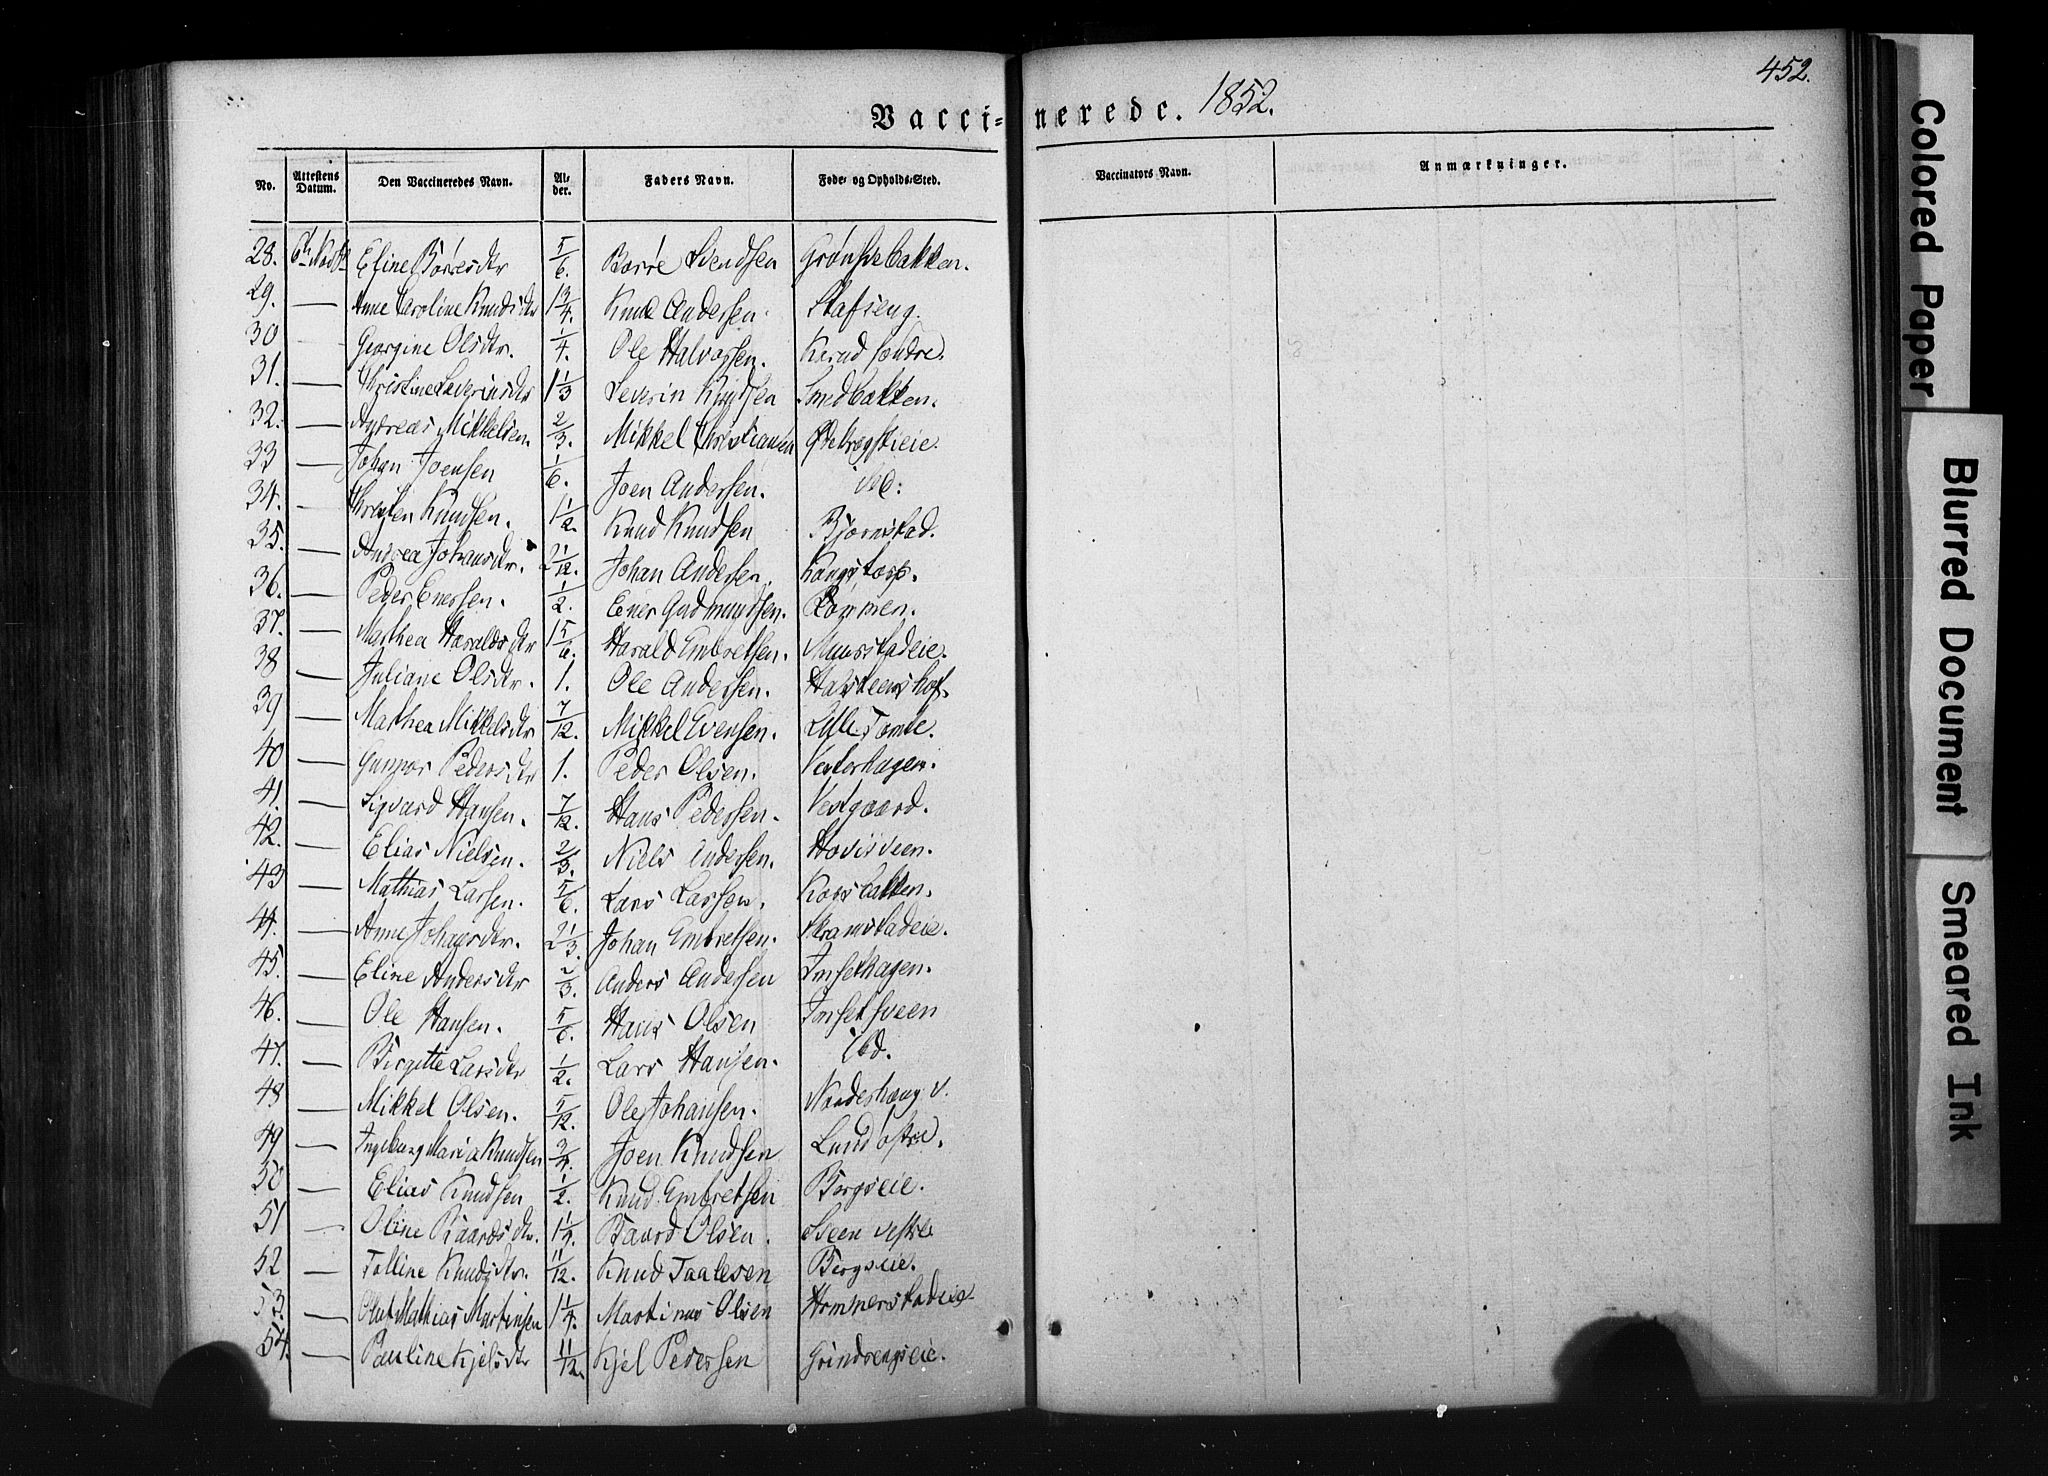 452.
Vacci= nerede. 1852.
No. Attestens Datum. Den Vaccineredes Navn. Al- der. Faders Navn. Føde- og Opholds-Sted. Vaccinators Navn. Anmærkninger.
28. Eline Børresdtr 5/6. Børre Svendsen
29. — Anne Caroline Knudsdtr 1 3/4. Knud Andersen. Stafseng.
30 — Georgine Olsdtr. 1/4. Ole Halvorsen. Kerud søndre.
31. — Christine Severinsdtr 1 1/3 Severin Knudsen Smedbakken.
32. — Andreas Mikkelsen. 2/3. Mikkel Christiansen
33 — Johan Joensen 1/6. Joen Andersen. ibd:
34. — Christen Knudsen. 1 1/2. Knud Knudsen Bjørnstad.
35. — Andrea Johansdtr. 2 1/12. Johan Andersen. Kongstorp.
36. — Peder Enersen. 1/2. Ener Gudmundsen. Rømmen.
37. — Mathea Haraldsdtr 1 5/6. Harald Embretsen. Muustadeie.
38 — Juliane Olsdtr. 1. Ole Andersen. Halsteenshof.
39 — Mathea Mikkelsdtr 7/12. Mikkel Evensen. Lille Tomte.
40 — Gunnor Pedersdtr 1. Peder Olsen. Vesterhagen.
41. — Sigvard Hansen. 7/12. Hans Pedersen. Vestgaard.
42. — Elias Nielsen. 2/3. Niels Andersen. Hovisveen.
43 — Mathias Larsen. 5/6. Lars Larsen. Korsbakken.
44. — Anne Johansdtr. 2 1/3. Johan Embretsen. Skramstadeie.
45. — Eline Andersdtr 2/3. Anders Andersen Imsethagen.
46. — Ole Hansen. 5/6. Hans Olsen Imsetsveen
47. — Birgitte Larsdtr 1/2. Lars Hansen. ibd.
48 — Mikkel Olsen. 5/12. Ole Johansen. Nordeshaug v.
49 — Ingeborg Maria Knudsen 3/4. Joen Knudsen Lund østre.
50 — Elias Knudsen 1/2. Knud Embretsen Bergseie.
51 — Oline Baardsdtr. 1 1/4. Baard Olsen. Steen vestre
52 — Tolline Knudsdtr. 11/12. Knud Taalesen Bergseie.
53. — Oluf Mathias Martinsen 1 1/4. Martinus Olsen Hommerstadeie.
54. — Pauline Kjelsdtr 11/12. Kjel Pedersen Grindrengseie.
Colored Paper
Blurred Document
Smeared Ink